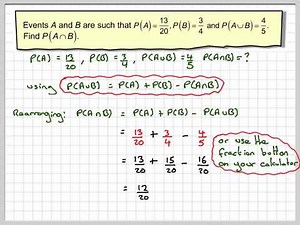 Events A and B are such that P(A) = 13/20, P(B) = 3/4 and P(A∪B) = 4/5.
Find P(A∩B).
P(A) = 13/20, P(B) = 3/4, P(A∪B) = 4/5 P(A∩B) = ?
using P(A∪B) = P(A) + P(B) - P(A∩B)
Rearranging: P(A∩B) = P(A) + P(B) - P(A∪B)
= 13/20 + 3/4 - 4/5
= 13/20 + 15/20 - 16/20
= 12/20
or use the
fraction button
on your calculator